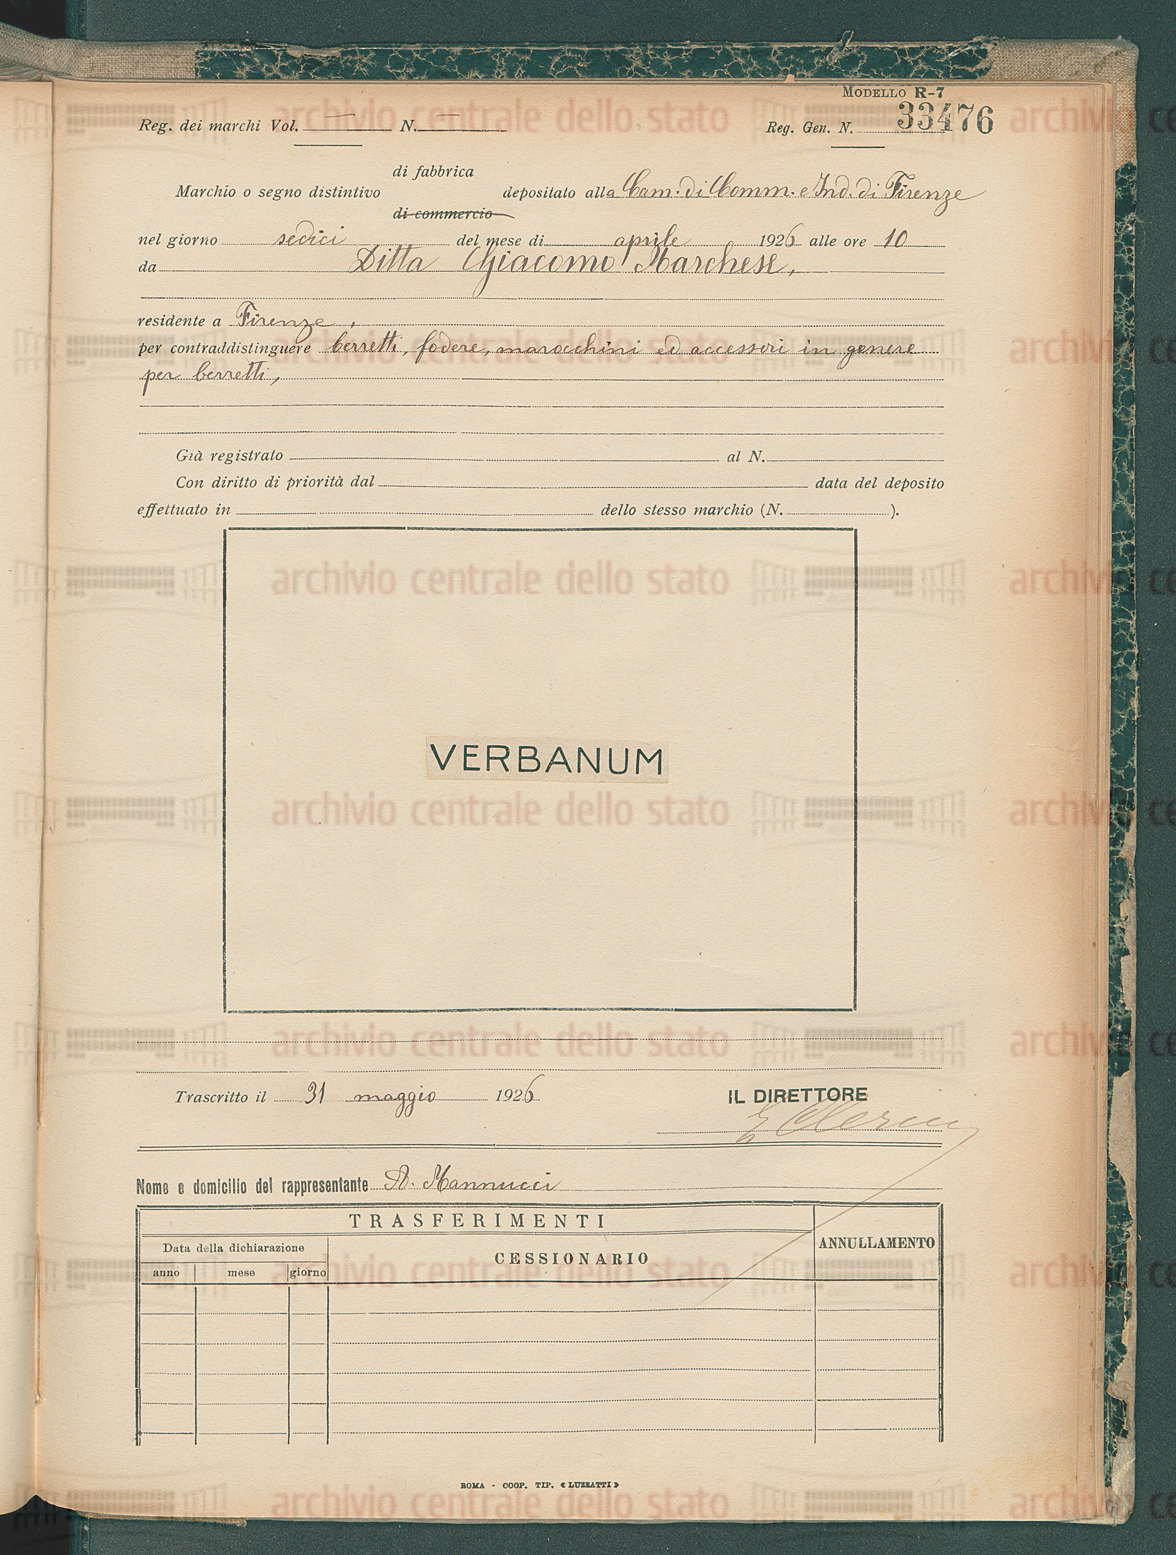 MODELLO R-7
Reg. dei marchi Vol. — N. — Reg. Gen. N. 33476
di fabbrica
Marchio o segno distintivo depositato alla Cam. di Comm. e Ind. di Firenze
di commercio
nel giorno sedici del mese di aprile 1926 alle ore 10
da Ditta Giacomo Marchese,
residente a Firenze,
per contraddistinguere berretti, fodere, marocchini ed accessori in genere
per berretti,
Già registrato al N.
Con diritto di priorità dal data del deposito
effettuato in dello stesso marchio (N. ).
VERBANUM
archivio centrale dello stato
Trascritto il 31 maggio 1926
IL DIRETTORE
Nome e domicilio del rappresentante A. Mannucci
TRASFERIMENTI
ANNULLAMENTO
Data della dichiarazione
CESSIONARIO
anno mese giorno
ROMA - COOP. TIP. « LUZZATTI »